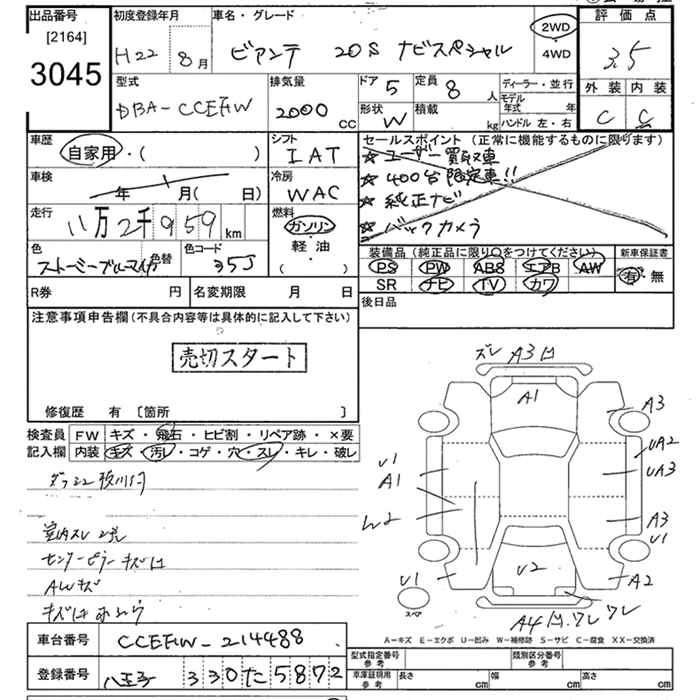 出品番号
[2164]
3045
初度登録年月
H22年 8月
車名・グレード
ビアンテ 20S ナビスペシャル
2WD
・
4WD
評価点
3.5
外装 内装
C C
型式
DBA-CCEFW
排気量
2000 cc
ドア 5
定員 8 人
形状 W
積載 kg
ディーラー・並行
モデル年式 年
ハンドル 左・右
車歴
自家用・( )
シフト
IAT
車検
年 月( 日)
冷房
WAC
走行
八万2千959 km
燃料
ガソリン
軽油
・
( )
色
ストーミーブルーマイカ
色替
色コード
35J
セールスポイント (正常に機能するものに限ります)
☆ ユーザー買取車
☆ 400台限定車!!
☆ 純正ナビ
☆ バックカメラ
装備品 (純正品に限り○をつけてください)
PS PW ABS エアB AW
SR ナビ TV カワ
新車保証書
有・無
R券 円
名変期限 月 日
後日品
注意事項申告欄 (不具合内容等は具体的に記入して下さい)
売切スタート
修復歴 有 [箇所 ]
検査員
記入欄
FW キズ・飛石・ヒビ割・リペア跡・×要
内装 キズ・汚レ・コゲ・穴・スレ・キレ・破レ
室内スレ 汚
センターピラーキズ
AWキズ
ズレ A3
A1
A3
UA2
UA3
A3
U1
A2
U1
A1
W2
U1
U2
A4 凹 ワレ ワレ
スペア
A-キズ E-エクボ U-凹み W-補修跡 S-サビ C-腐食 XX-交換済
車台番号
CCEFW-214488
登録番号
八王子 330 た 5872
型式指定番号
参考
類別区分番号
参考
車庫証明規格
参考
長さ cm
幅 cm
高さ cm